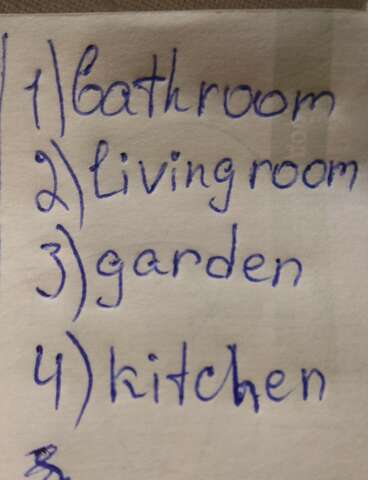 1) bathroom
2) living room
3) garden
4) kitchen